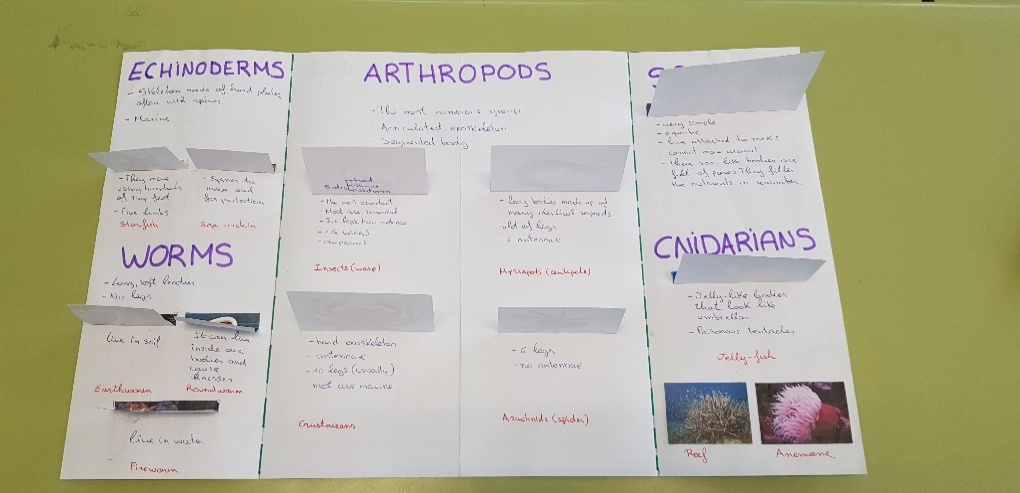 ECHINODERMS
- Skeleton made of hard plates
often with spines
- Marine
- They move
using hundreds
of tiny feet
- Five limbs
Starfish
- Spines to
move and
for protection
Sea urchin
WORMS
- Long, soft bodies
- No legs
live in soil
Earthworm
It can live
inside our
bodies and
cause
illnesses
Roundworm
live in water
Fireworm
ARTHROPODS
- The most numerous group
- Articulated exoskeleton
- Segmented body
- The most abundant
Most are terrestrial
- Six legs, two antennae
wings
Insects (wasp)
- Long bodies made up of
many identical segments
legs
antennae
Myriapods (centipede)
- hard exoskeleton
- antennae
- 10 legs (usually)
most are marine
Crustaceans
legs
- no antennae
Arachnids (spider)
S
- very simple
- aquatic
- live attached to rocks
cannot move around
- their sac-like bodies are
full of pores They filter
the nutrients in seawater.
CNIDARIANS
- Jelly-like bodies
that look like
umbrella
- Poisonous tentacles
Jelly-fish
Reef
Anemone